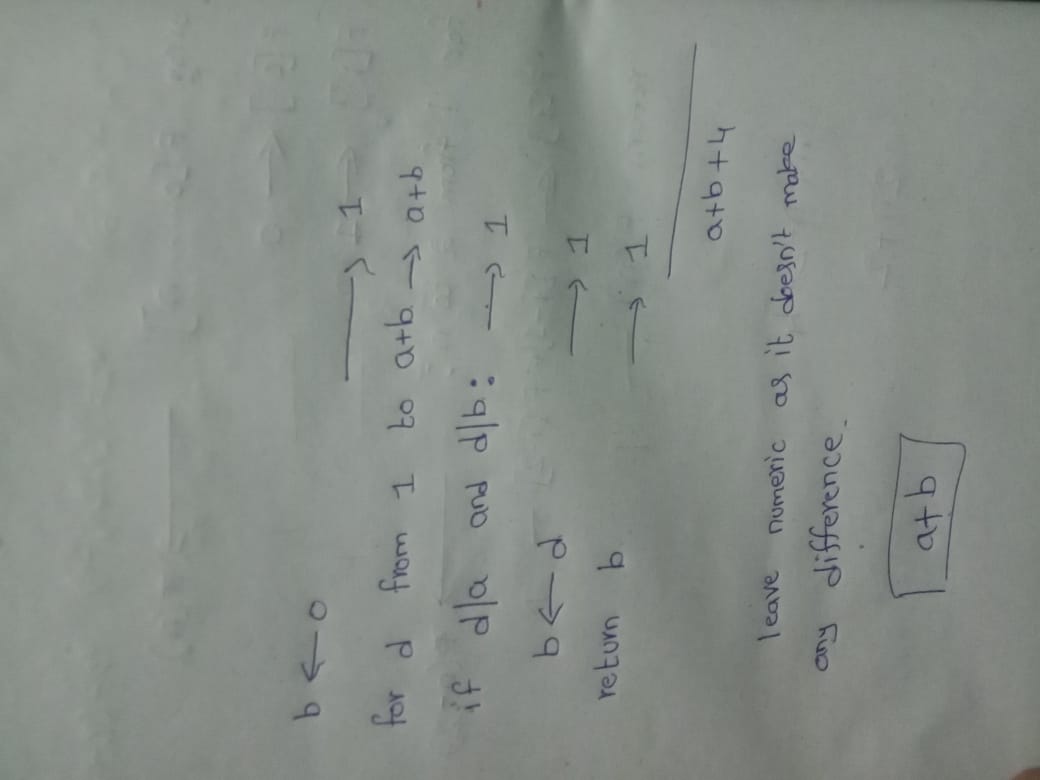 b ← 0 → 1
for d from 1 to a+b → a+b
if d|a and d|b: → 1
b ← d → 1
return b → 1
a+b+4
leave numeric as it doesn't make
any difference.
a+b